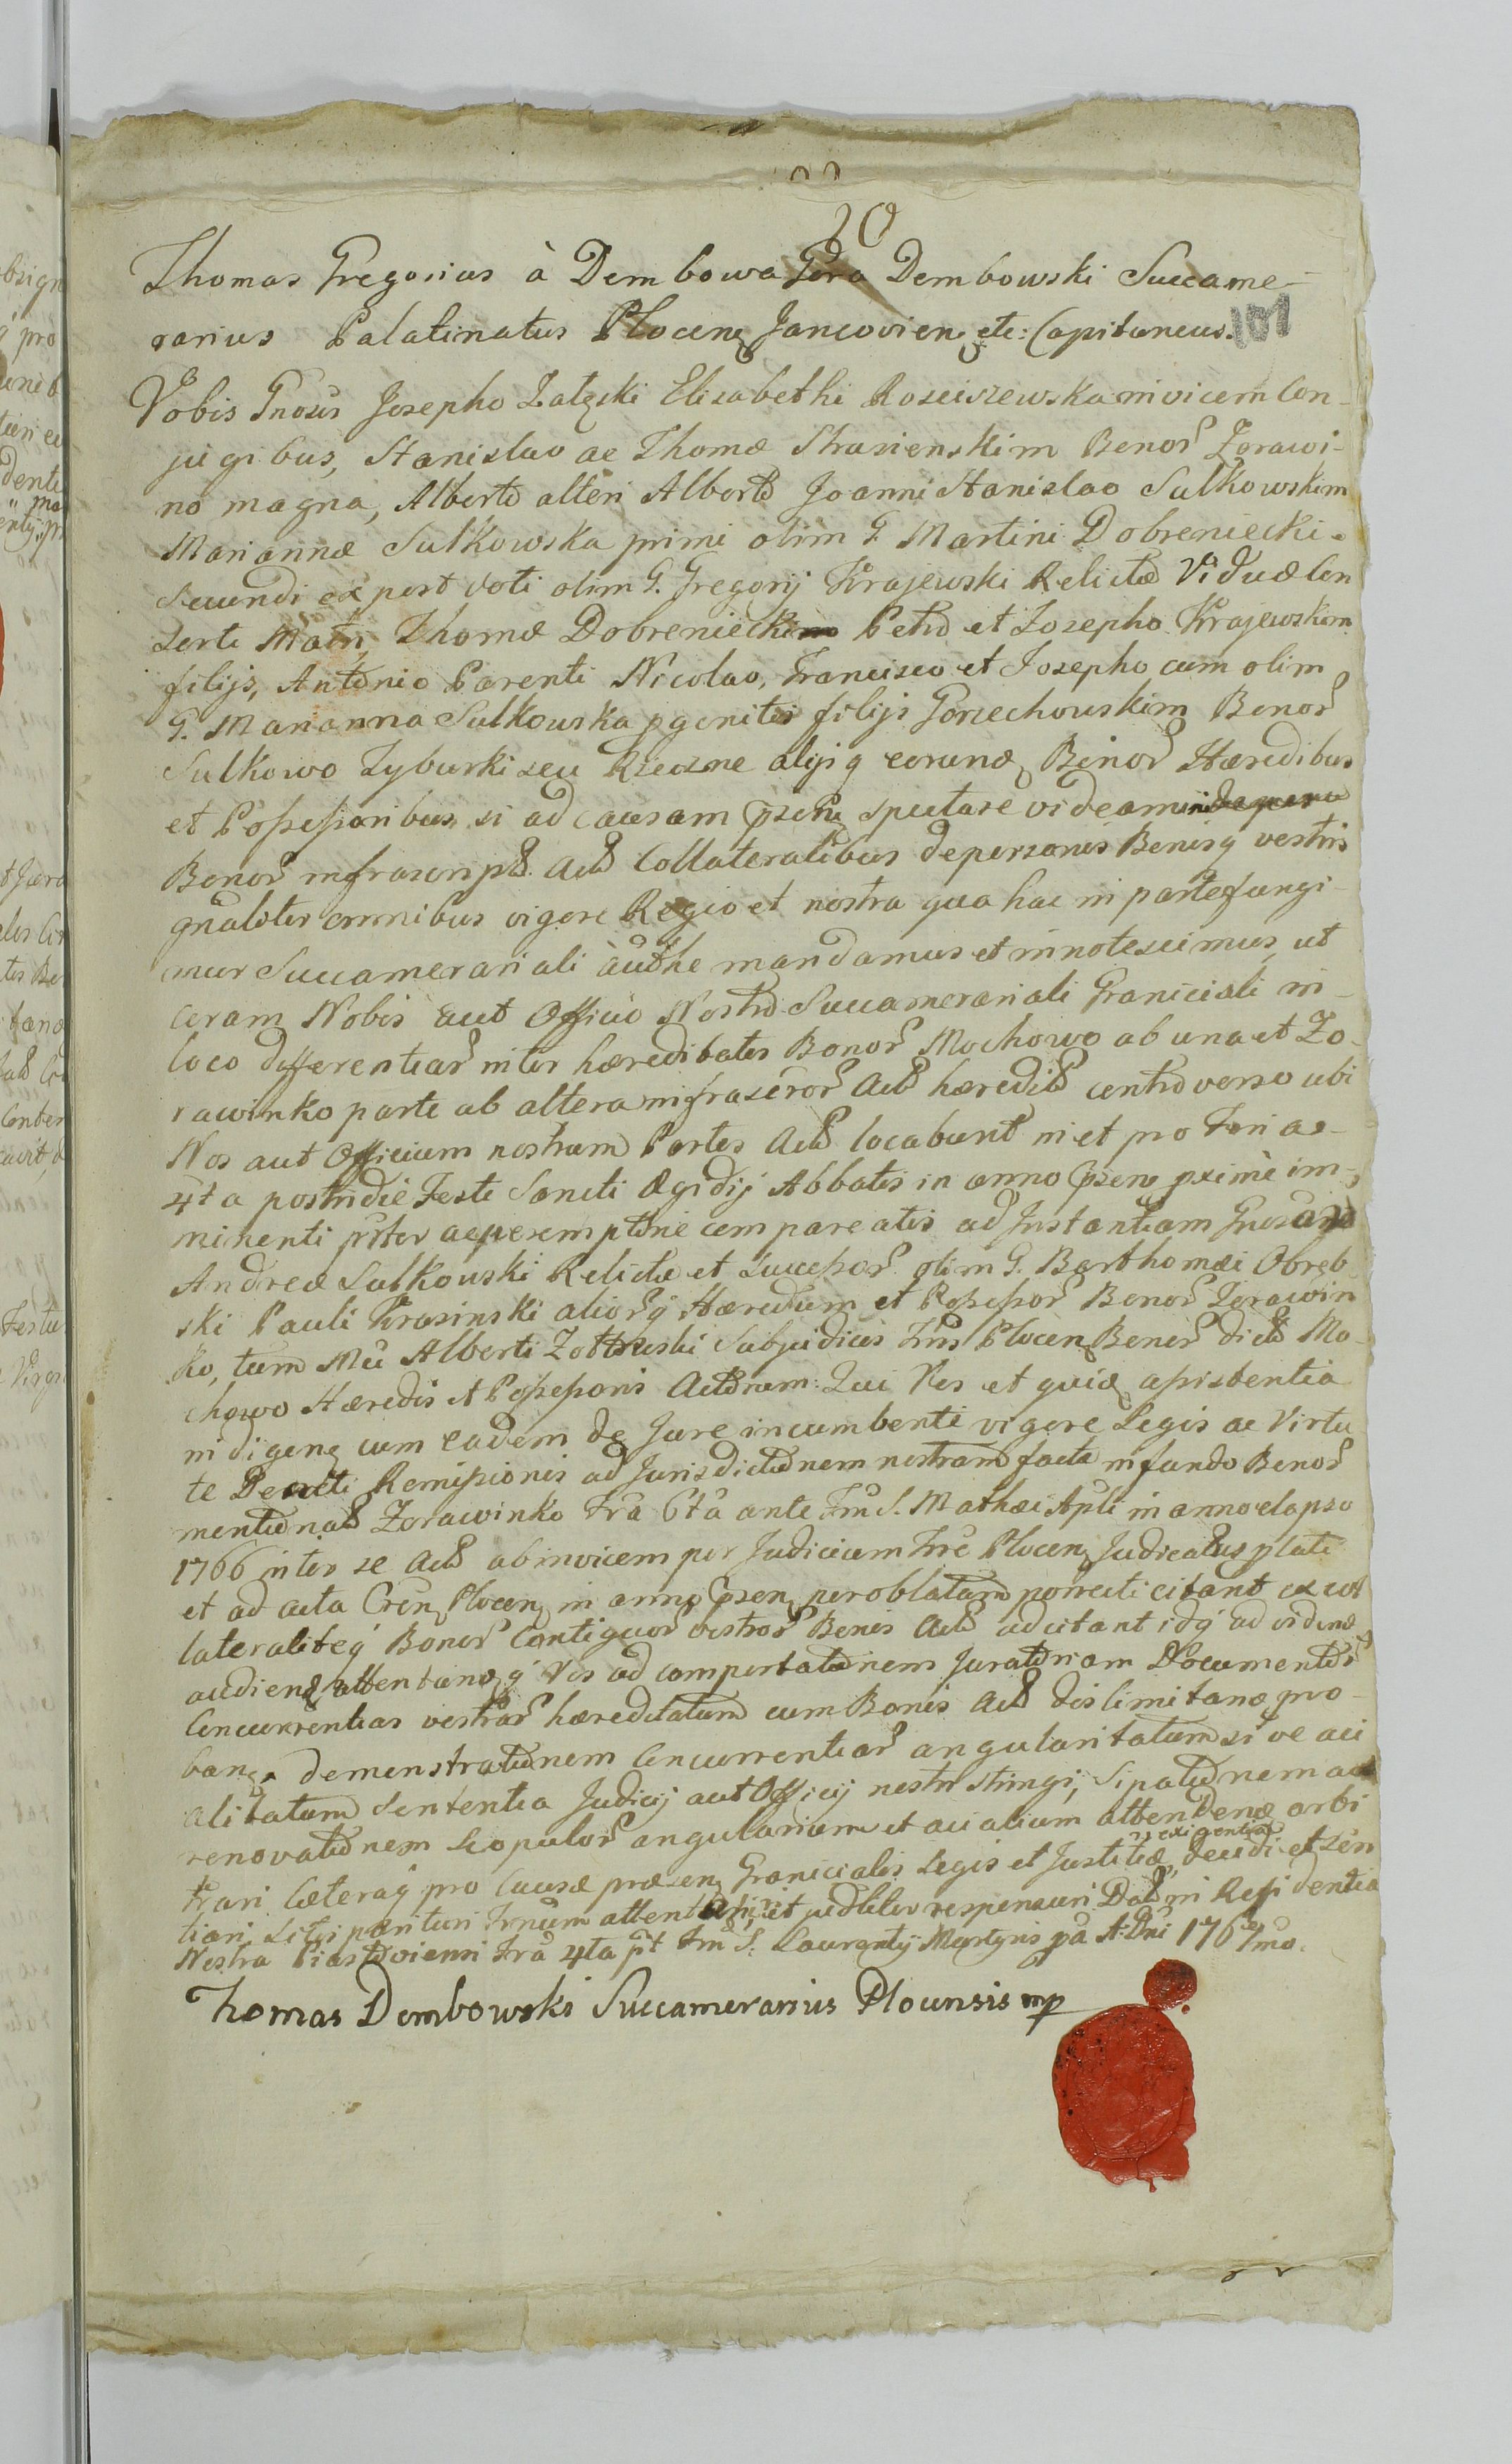 20
Thomas Gregorius à Dembowa Góra Dembowski Succame-
rarius Palatinatus Plocen Jancovien etc: Capitaneus.
101
Vobis Gnosis Josepho Zalęski Elisabethi Rosciszewska invicem Con-
jugibus, Stanislao ac Thomæ Strasienskim Benor Zorawi-
no magna, Alberto alteri Alberto Joanni Stanislao Sulkowskim
Mariannæ Sulkowska primi olim G. Martini Dobreniecki
Secundi ex post voti olim G. Gregorij Krajewski Relictæ Viduæ Con
sorti Matri, Thomæ Dobrenieckim Petro et Josepho Krajewskim
filijs, Antonio Parenti Nicolao, Francisco et Josepho cum olim
G. Marianna Sulkowska pgenitis filijs Gorzechowskim Benor
Sulkowo Tyburki seu Rzeczne alijsq eorund Bonor Hæredibus
et Possessoribus, si ad causam psen spectare videamini
Bonor infrascript Actt Collateralibus de personis Benisq vestris
gnaliter omnibus vigore Regio et nostra qua hac in parte fungi-
mur Succamerariali autthe mandamus et innotescimus, ut
coram Nobis aut Officio Nostro Succamerariali Graniciali in
loco differentiar inter hæreditates Bonor Mochowo ab una et Zo-
rawinko parte ab altera infrascror Actt hæredit controverso ubi
Nos aut Officium nostrum Partes Actt locabunt in et pro Feria
4ta postridie Festi Sancti Ægidij Abbatis in anno psen proxime im-
minenti ptter ac peremptorie compareatis ad Instantiam Gnosar
Andreæ Sulkowski Relictæ et Success olim G. Barthomæi Obręb
ski Pauli Krasinski aliorq Hæredum et Possessor Bonor Zorawin
ko, tum Mci Alberti Subjudicis Tris Plocen Benor dict Mo-
chowo Hæredis et Possessoris Actorum: Qui Vos et quid assistentia
indigen cum eadem de Jure incumbenti vigore Legis ac Virtu
te Decreti Remissionis ad Jurisdictionem nostram facta in fundo Benor
mentionat Zorawinko Fra 6ta ante Fm S. Mathæi Apli in anno elapso
1766 inter se Actt ab invicem per Judicium Tre Plocen
et ad acta Cren Plocen in anno psen per oblatam porrecti citant ex col
lateraliteq Bonor Contiguor vestror Benis Actt adcitant idq ad vidend
audiend attentandq Vos ad comportationem Juratoriam Documentor
Concurrentias vestrar hæreditatum cum Bonis Actt dislimitand pro-
band demonstrationem Concurrentiar angularitatum sive aci
alitatum Sententia Judicij aut Officij nostri stringi, Sipationem ac
renovationem Scopulor angularium et acialium attendend arbi
trari Cæteraq pro Causæ præsen Granicialis Legis et Justitiæ exigentia decidi et sen
tiari. Litis parituri Trnum attentaturi, et judlter responsuri Datt in Residentia
Nostra Piastoviensi Fra 4ta pt Fm S. Laurentij Martyris pa A: Dni 1767mo.
Thomas Dembowski Succamerarius Plocensis mp